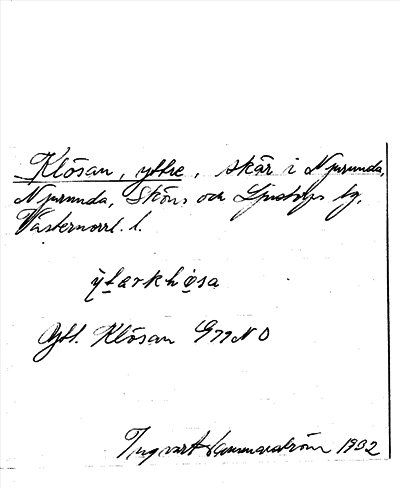 Klösan, yttre, skär i Njurunda,
Njurunda, Sköns och Ljustorps tg,
Västernorrl. l.
ỳtərkḷọsa
Ytt. Klösan G77NO
Ingvart Hammarström 1932